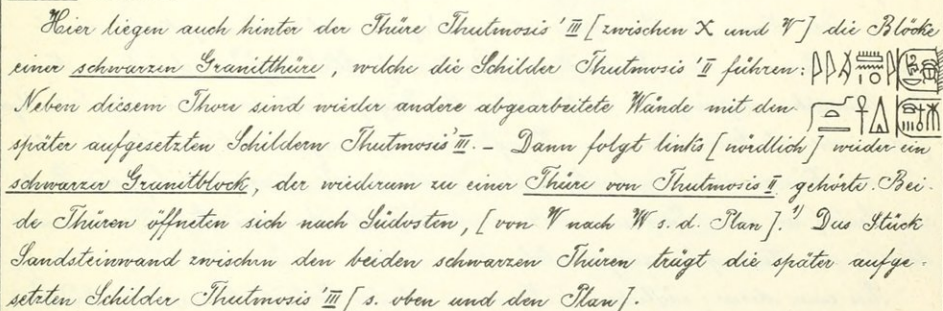 Hier liegen auch hinter der Thüre Thutmosis' III [zwischen X und V] die Blöcke
einer schwarzen Granitthüre, welche die Schilder Thutmosis' II führen:
Neben diesem Thore sind wieder andere abgearbeitete Wände mit den
später aufgesetzten Schildern Thutmosis' III. – Dann folgt links [nördlich] wieder ein
schwarzer Granitblock, der wiederum zu einer Thüre von Thutmosis II. gehörte. Bei-
de Thüren öffneten sich nach Südosten, [von V nach W s. d. Plan].¹⁾ Das Stück
Sandsteinwand zwischen den beiden schwarzen Thüren trägt die später aufge-
setzten Schilder Thutmosis' III [s. oben und den Plan].